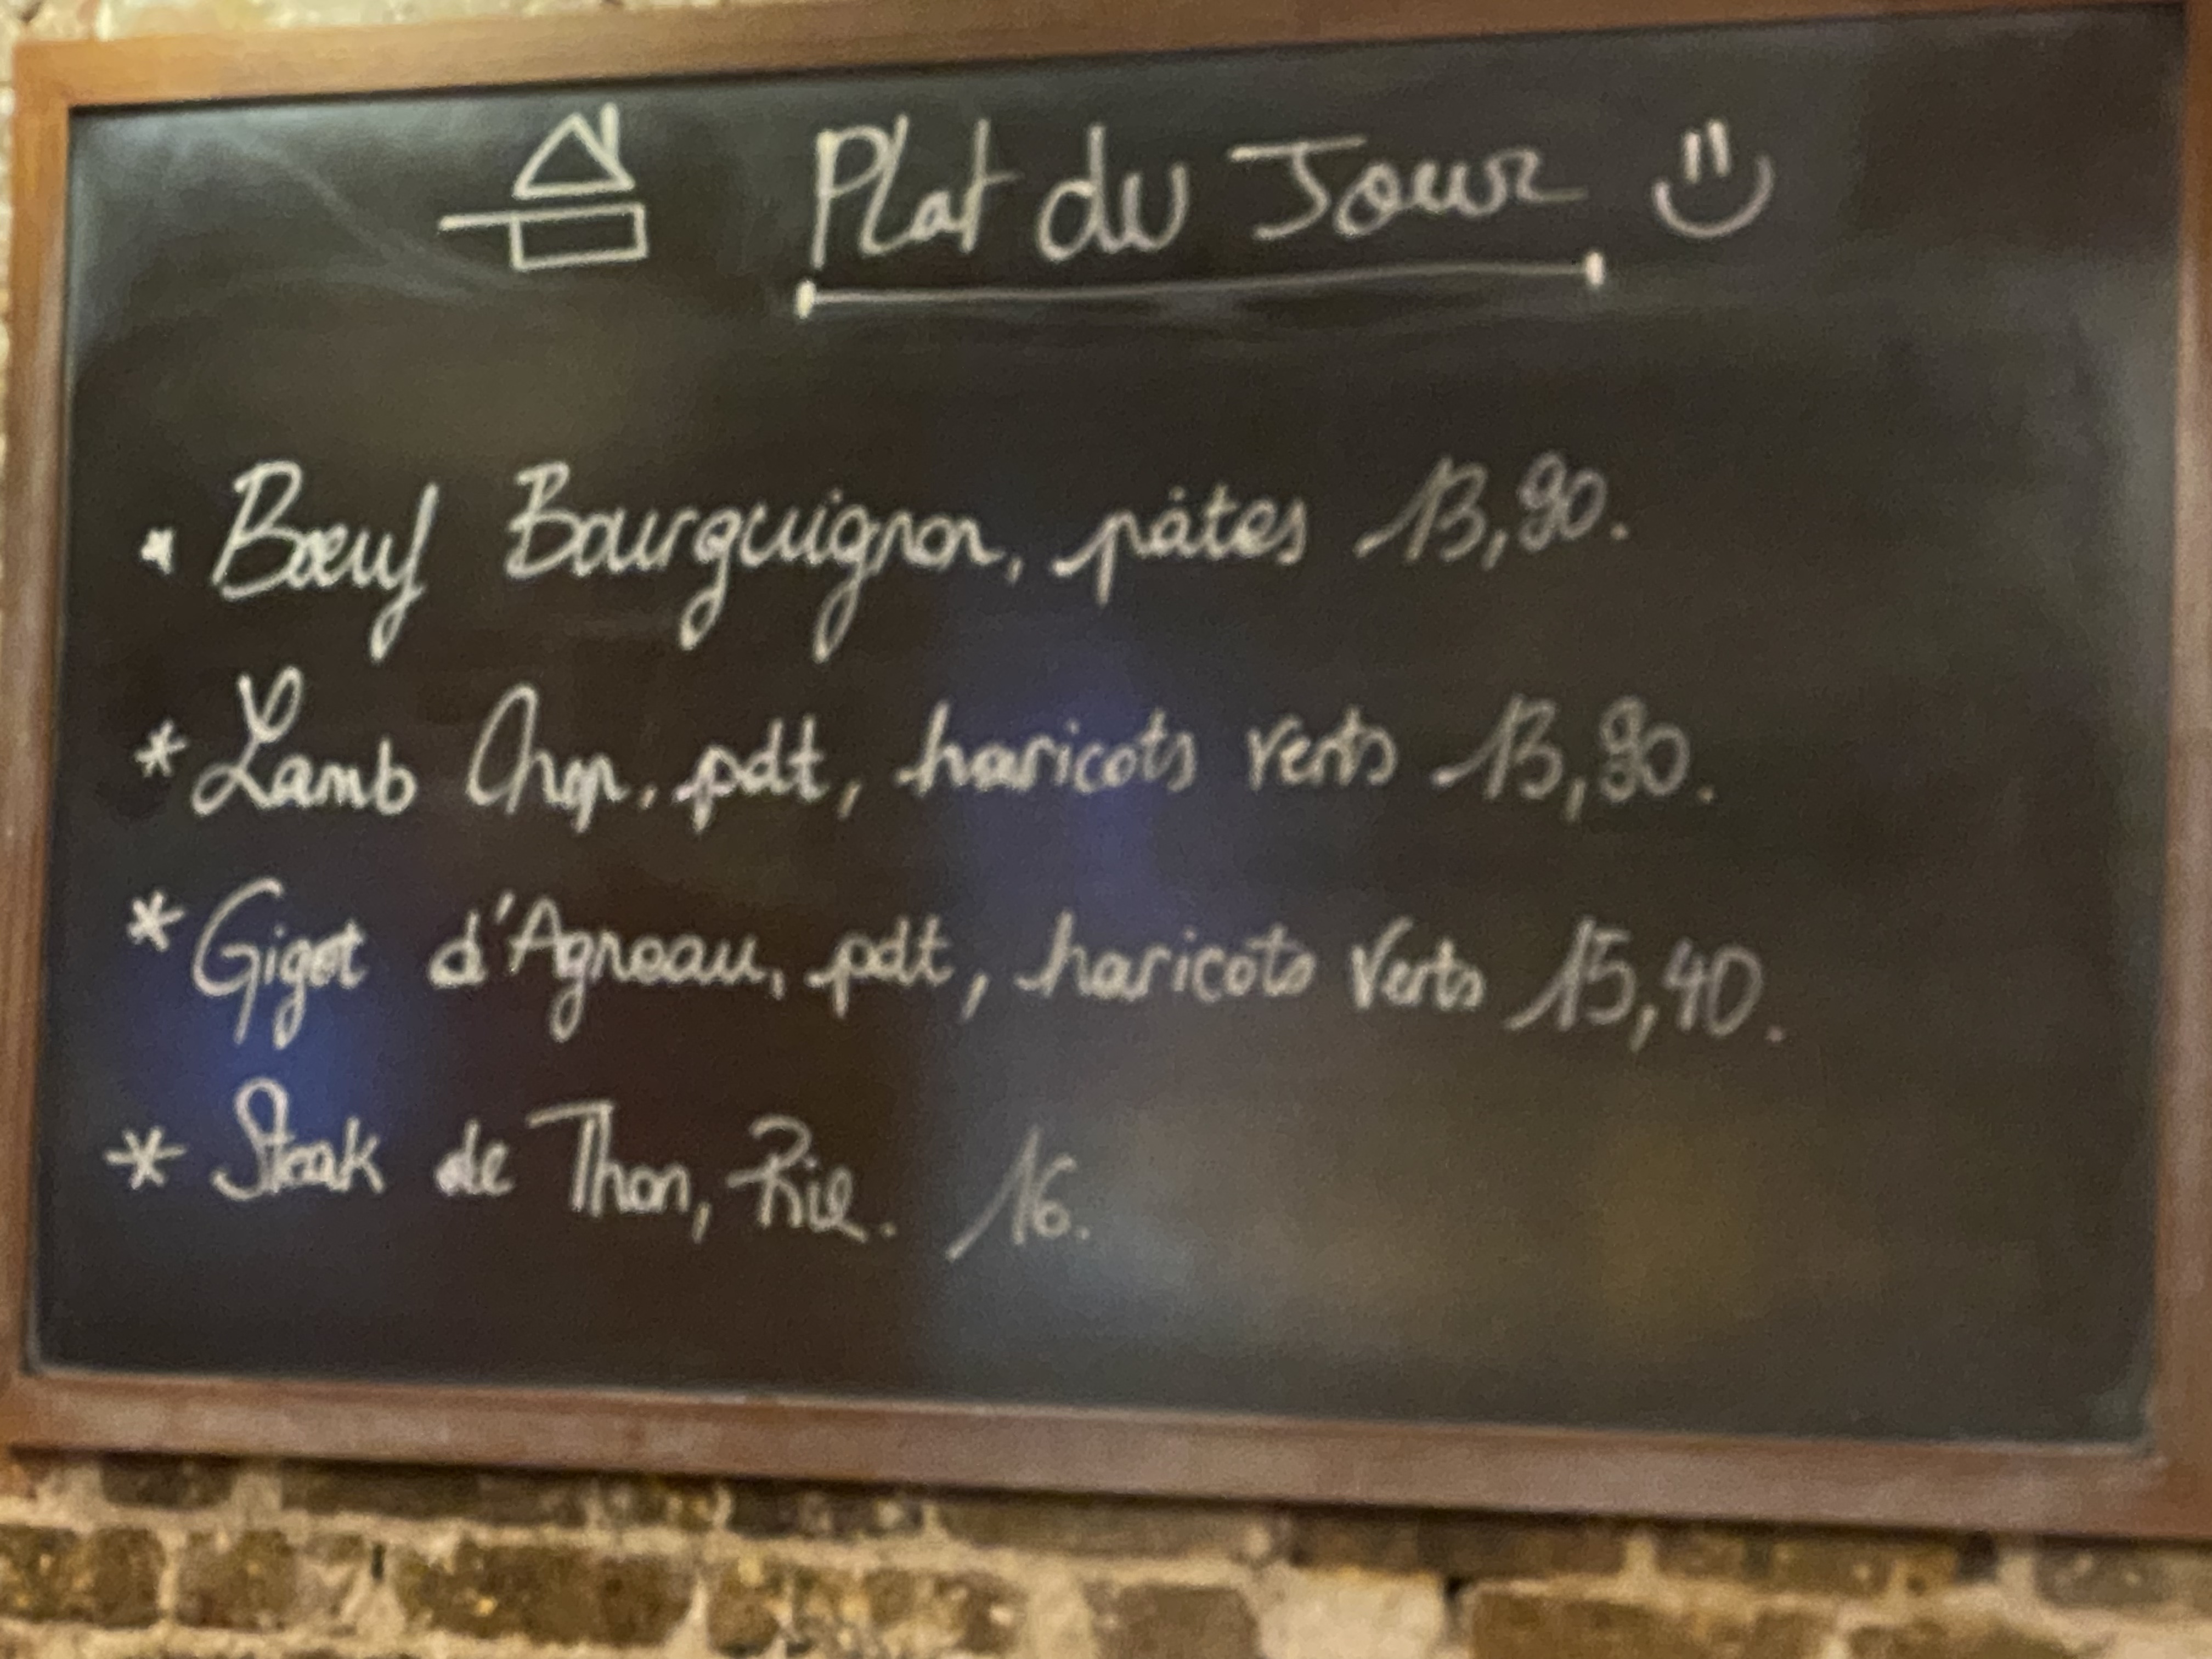 Plat du Jour
* Bœuf Bourguignon, pâtes 13,90.
* Lamb Chop, pdt, haricots verts 13,90.
* Gigot d'Agneau, pdt, haricots Verts 15,40.
* Steak de Thon, Riz. 16.